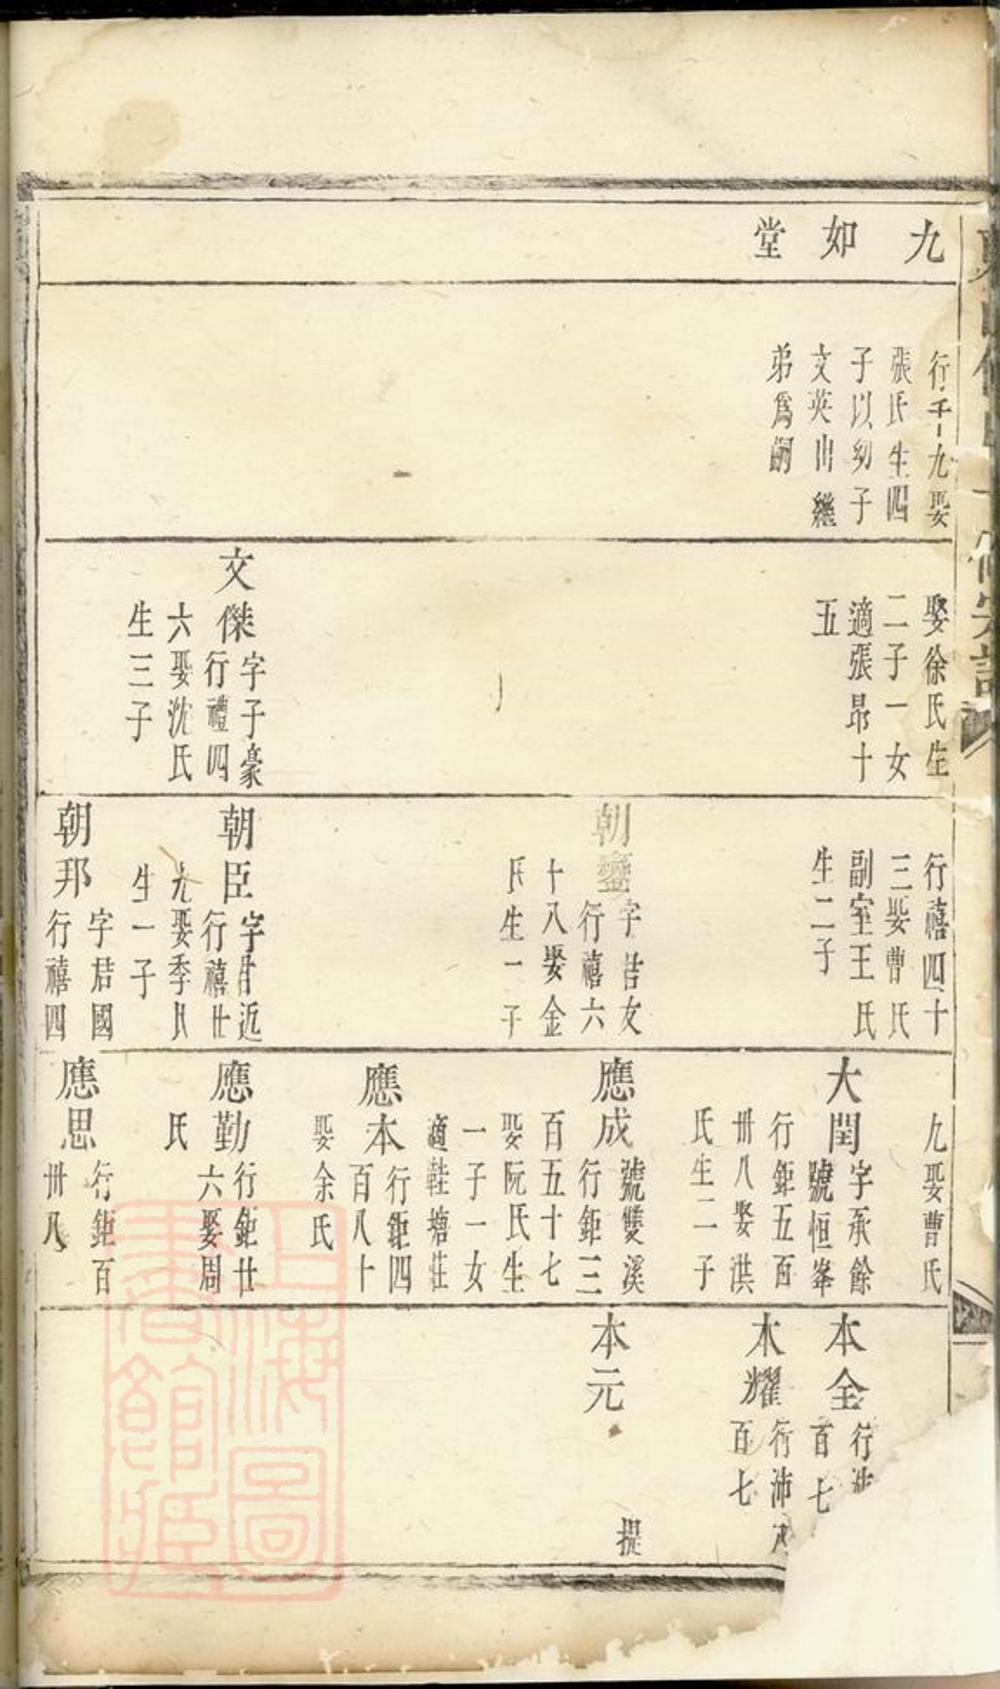 九如堂
行千一九娶
張氏生四
子以幼子
文英出繼
弟為嗣
娶徐氏生
二子一女
適張昂十
五
文傑
字子豪
行禮四
六娶沈氏
生三子
行禧四十
三娶曹氏
副室王氏
生二子
朝
字 女
行禧六
十八娶金
氏生一子
朝臣
字 近
行禧廿
九娶季氏
生一子
朝邦
字 國
行禧四
九娶曹氏
大閏
字承餘
號恒峯
行鉅五百
卅八娶洪
氏生二子
應成
號雙溪
行鉅三
百五十七
娶阮氏生
一子一女
適鞋塘莊
應本
行鉅四
百八十
娶余氏
應勤
行鉅廿
六娶周
氏
應思
行鉅百
卅八
本全
行沛
百七
本耀
行沛
百七
本元
提
上海圖書館藏